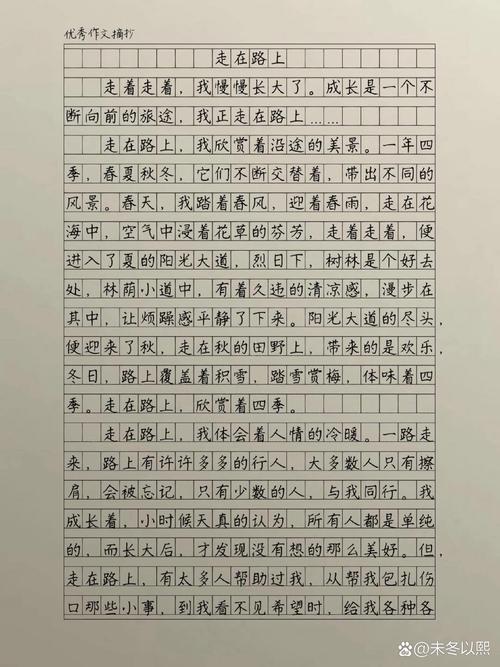 优秀作文摘抄
走在路上
走着走着，我慢慢长大了。成长是一个不
断向前的旅途，我正走在路上……
走在路上，我欣赏着沿途的美景。一年四
季，春夏秋冬，它们不断交替着，带出不同的
风景。春天，我踏着春风，迎着春雨，走在花
海中，空气中浸着花草的芬芳，走着走着，便
进入了夏的阳光大道，烈日下，树林是个好去
处，林荫小道中，有着久违的清凉感，漫步在
其中，让烦躁感平静了下来。阳光大道的尽头，
便迎来了秋，走在秋的田野上，带来的是欢乐，
冬日，路上覆盖着积雪，踏雪赏梅，体味着四
季。走在路上，欣赏着四季。
走在路上，我体会着人情的冷暖。一路走
来，路上有许许多多的行人，大多数人只有擦
肩，会被忘记，只有少数的人，与我同行。我
成长着，小时候天真的认为，所有人都是单纯
的，而长大后，才发现没有想的那么美好。但，
走在路上，有太多人帮助过我，从帮我包扎伤
口那些小事，到我看不见希望时，给我各种各
@未冬以熙